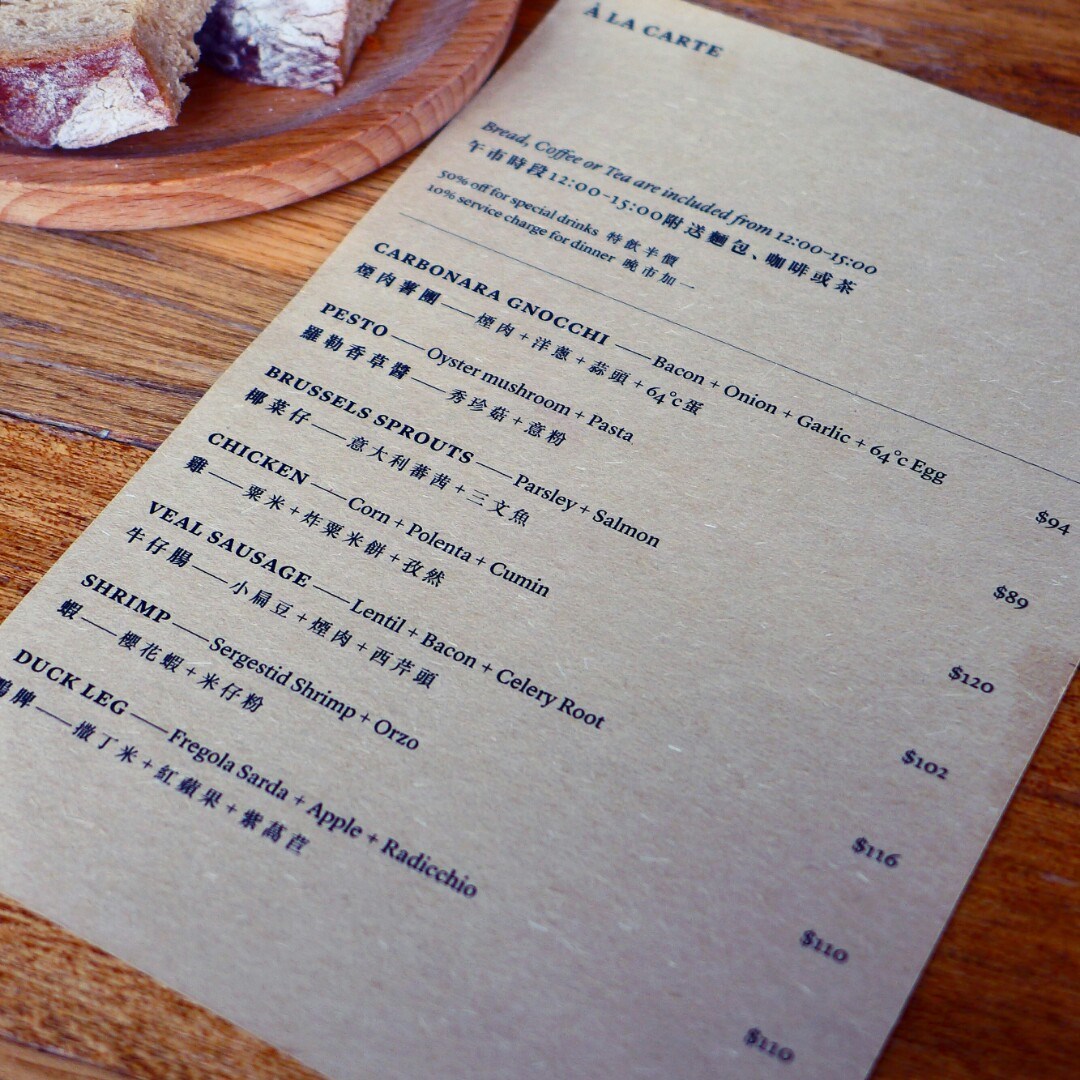 À LA CARTE
Bread, Coffee or Tea are included from 12:00-15:00
午市時段12:00-15:00附送麵包、咖啡或茶
50% off for special drinks 特飲半價
10% service charge for dinner 晚市加一
CARBONARA GNOCCHI — Bacon + Onion + Garlic + 64°c Egg $94
煙肉薯團 — 煙肉 + 洋蔥 + 蒜頭 + 64°c蛋
PESTO — Oyster mushroom + Pasta $89
羅勒香草醬 — 秀珍菇 + 意粉
BRUSSELS SPROUTS — Parsley + Salmon $120
椰菜仔 — 意大利蕃茜 + 三文魚
CHICKEN — Corn + Polenta + Cumin $102
雞 — 粟米 + 炸粟米餅 + 孜然
VEAL SAUSAGE — Lentil + Bacon + Celery Root $116
牛仔腸 — 小扁豆 + 煙肉 + 西芹頭
SHRIMP — Sergestid Shrimp + Orzo $110
蝦 — 櫻花蝦 + 米仔粉
DUCK LEG — Fregola Sarda + Apple + Radicchio $110
鴨脾 — 撒丁米 + 紅蘋果 + 紫萵苣